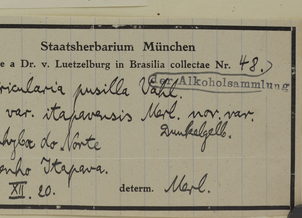 Staatsherbarium München
e a Dr. v. Luetzelburg in Brasilia collectae Nr. 48.
der Alkoholsammlung
ricularia pusilla Vahl.
var. itapavensis Merl. nov. var.
Dunkelgelb.
do Norte
enho Itapava.
XII. 20. determ. Merl.